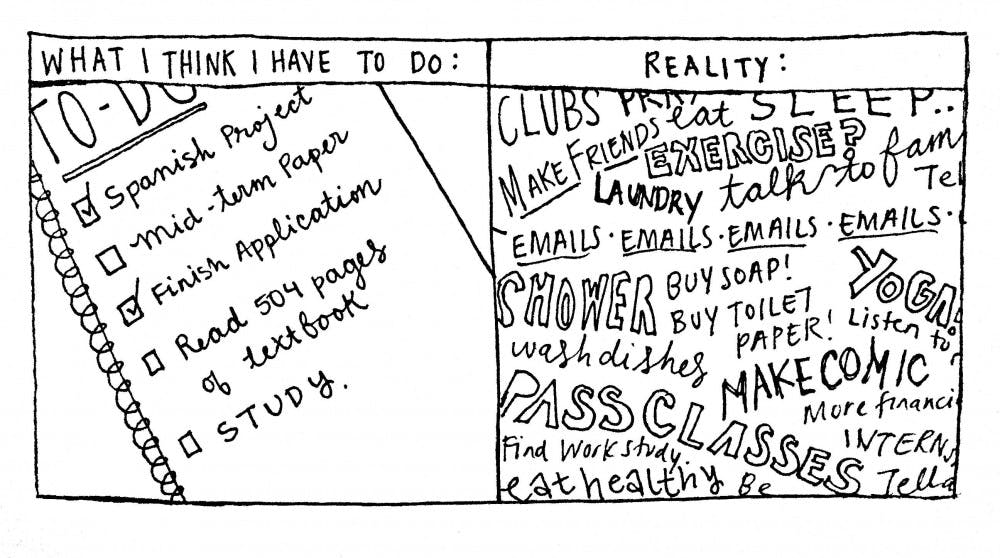 WHAT I THINK I HAVE TO DO:
TO-DO
Spanish Project
Mid-term Paper
Finish Application
Read 504 pages
of textbook
STUDY.
REALITY:
CLUBS eat SLEEP..
MAKE FRIENDS EXERCISE?
LAUNDRY talk to fam
Tel
EMAILS · EMAILS · EMAILS · EMAILS ·
SHOWER BUY SOAP! YOGA!
BUY TOILET
PAPER! Listen to
wash dishes
MAKE COMIC
PASS CLASSES More financi
Find Work study. INTERNS
eat healthy Be Tella